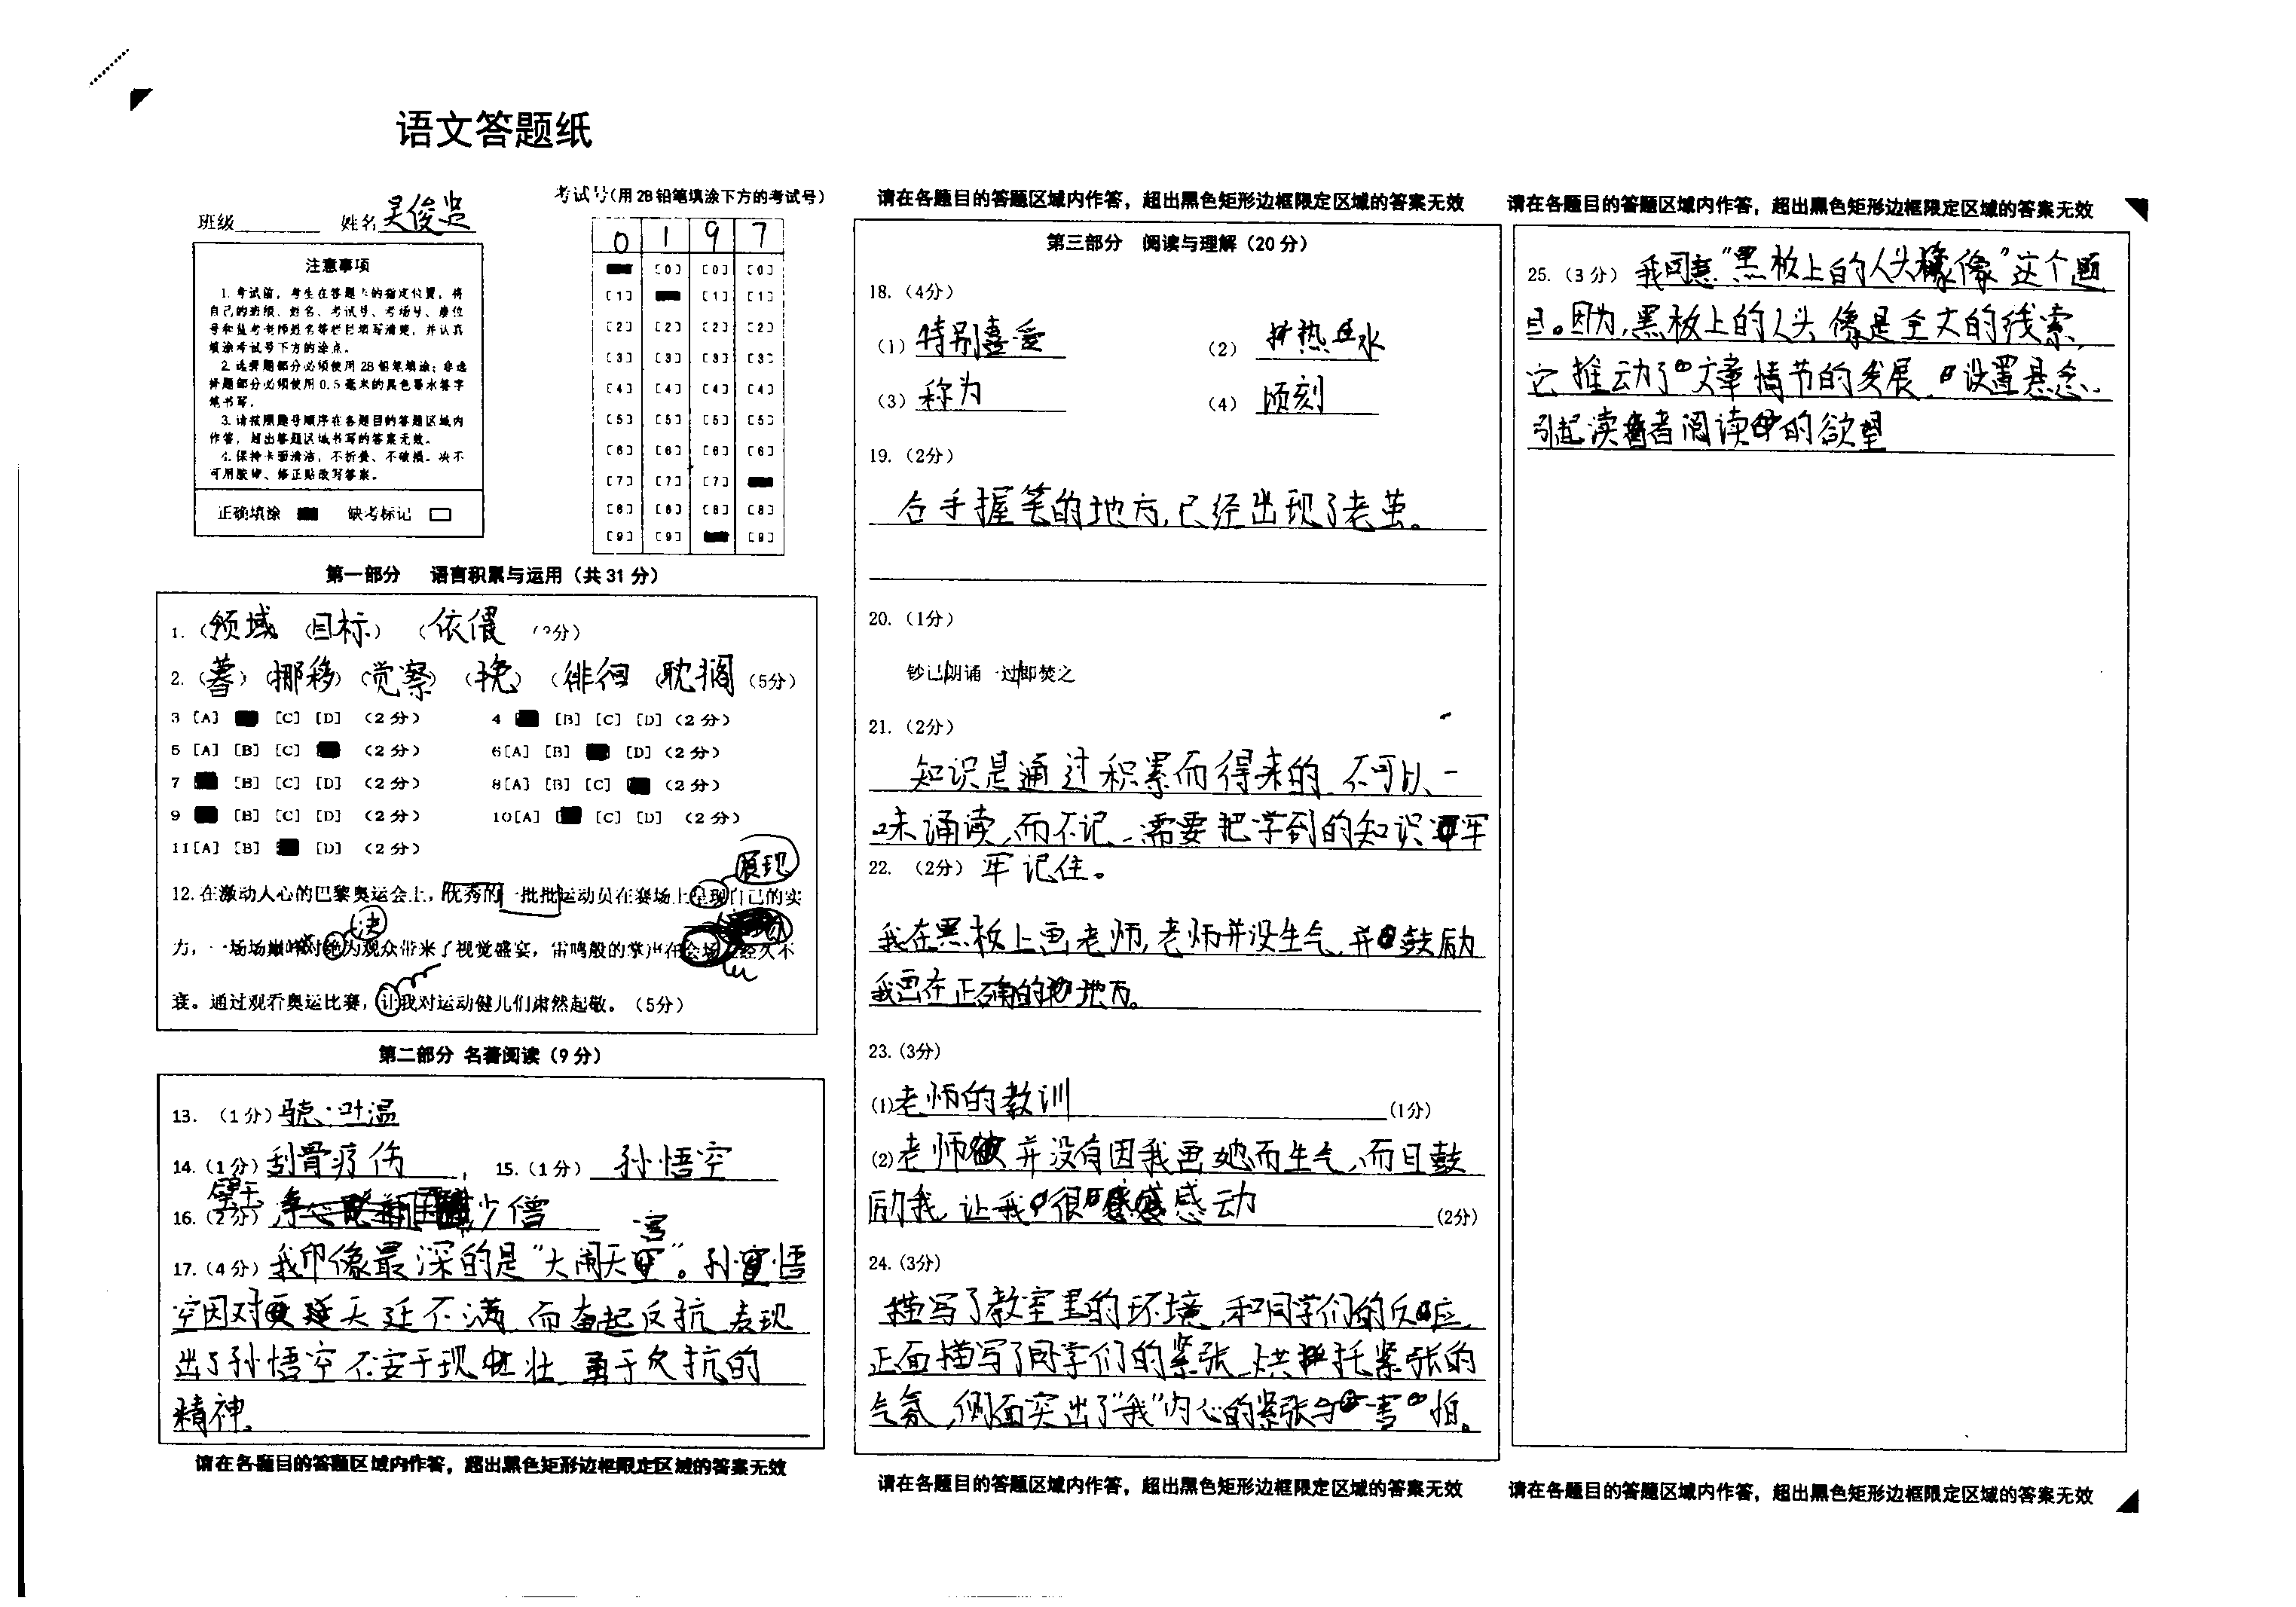 语文答题纸
班级 姓名 吴俊
考试号(用 2B 铅笔填涂下方的考试号)
0 1 9 7
[0] [0] [0]
[1] [1] [1]
[2] [2] [2] [2]
[3] [3] [3] [3]
[4] [4] [4] [4]
[5] [5] [5] [5]
[6] [6] [6] [6]
[7] [7] [7]
[8] [8] [8] [8]
[9] [9] [9]
注意事项
1. 考试前,考生在答题卡的指定位置,将
自己的班级、姓名、考试号、考场号、座位
号和监考老师姓名等栏目填写清楚,并认真
填涂考试号下方的涂点。
2. 选择题部分必须使用 2B 铅笔填涂;非选
择题部分必须使用 0.5 毫米的黑色墨水签字
笔书写。
3. 请按照题号顺序在各题目的答题区域内
作答,超出答题区域书写的答案无效。
4. 保持卡面清洁,不折叠、不破损。决不
可用胶带、修正贴改写答案。
正确填涂 缺考标记
第一部分 语言积累与运用(共 31 分)
1.(领域 (目标) (依偎 分)
2.(蓦) (挪移) (觉察) (挽) (徘徊 (耽搁 (5分)
3 [A] [C] [D] (2 分) 4 [B] [C] [D] (2 分)
5 [A] [B] [C] (2 分) 6[A] [B] [D] (2 分)
7 [B] [C] [D] (2 分) 8[A] [B] [C] (2 分)
9 [B] [C] [D] (2 分) 10[A] [C] [D] (2 分)
11[A] [B] [D] (2 分)
展现
12. 在激动人心的巴黎奥运会上,优秀的一批批运动员在赛场上呈现自己的实
决
力,一场场巅峰对绝为观众带来了视觉盛宴,雷鸣般的掌声在会场 经久不
衰。通过观看奥运比赛,让我对运动健儿们肃然起敬。(5分)
第二部分 名著阅读(9 分)
13. (1 分) 骁·叶温
14. (1 分) 刮骨疗伤 , 15. (1 分) 孙悟空
16. (2 分) 少僧
17. (4 分) 我印像最深的是“大闹天宫”。孙悟
空因对天廷不满 而奋起反抗 表现
出了孙悟空不安于现壮 勇于反抗的
精神。
请在各题目的答题区域内作答,超出黑色矩形边框限定区域的答案无效
请在各题目的答题区域内作答,超出黑色矩形边框限定区域的答案无效
第三部分 阅读与理解(20 分)
18. (4分)
(1) 特别喜爱 (2) 热水
(3) 称为 (4) 顷刻
19. (2分)
右手握笔的地方,已经出现了老茧。
20. (1分)
钞已朗诵一过即焚之
21. (2分)
知识是通过积累而得来的 不可以 一
味诵读,而不记、需要把学到的知识牢
22. (2分) 牢记住。
我在黑板上画老师,老师并没生气,并鼓励
我画在正确的地方。
23. (3分)
(1)老师的教训 (1分)
(2)老师并没有因我画她而生气,而且鼓
励我 让我很感动 (2分)
24. (3分)
描写了教室里的环境,和同学们的反应,
正面描写了同学们的紧张 烘托紧张的
气氛,侧面突出了“我”内心的紧张与害怕。
请在各题目的答题区域内作答,超出黑色矩形边框限定区域的答案无效
请在各题目的答题区域内作答,超出黑色矩形边框限定区域的答案无效
25. (3 分) 我同意“黑板上的人头像”这个题
目。因为,黑板上的人头像是全文的线索,
它推动了文章情节的发展,设置悬念,
引起读者阅读的欲望
请在各题目的答题区域内作答,超出黑色矩形边框限定区域的答案无效